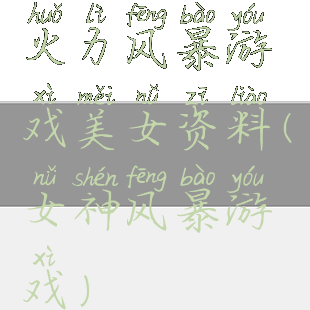 huǒ lì fēng bào yóu
火力风暴游
xì měi nǚ zī liào
戏美女资料(
nǚ shén fēng bào yóu
女神风暴游
xì
戏)